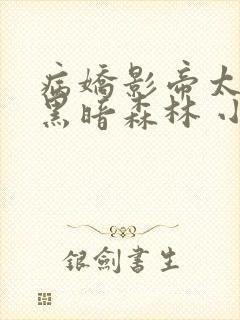 病嬌影帝太
黑暗森林 小
銀劍書生